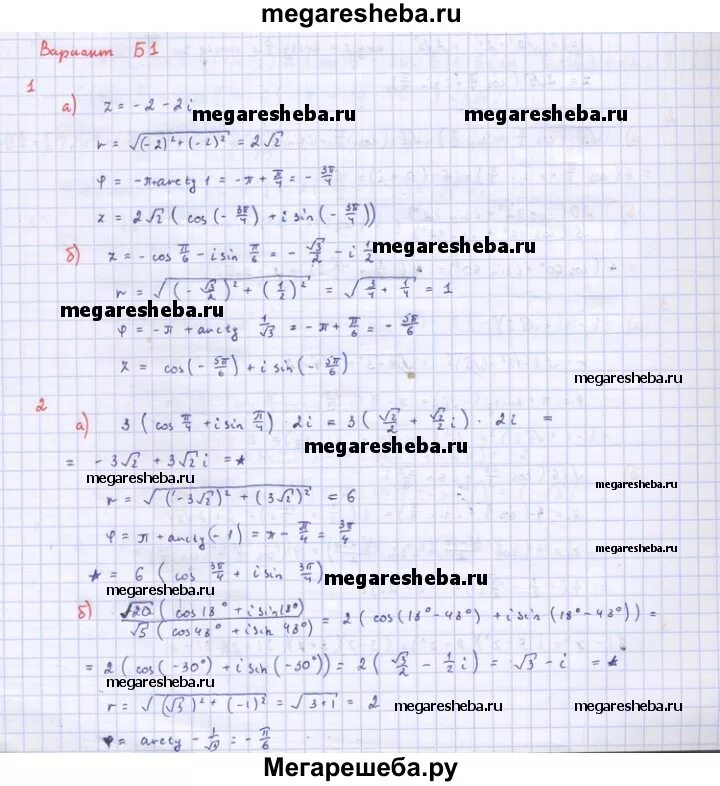 megaresheba.ru
Вариант Б1
1
а) z = -2 - 2i
megaresheba.ru
megaresheba.ru
r = √((-2)² + (-2)²) = 2√2
φ = -π + arctg 1 = -π + π/4 = - 3π/4
z = 2√2 ( cos(- 3π/4) + i sin(- 3π/4))
б) z = - cos π/6 - i sin π/6 = - √3/2 - i 1/2
megaresheba.ru
r = √((- √3/2)² + (1/2)²) = √(3/4 + 1/4) = 1
megaresheba.ru
φ = -π + arctg 1/√3 = -π + π/6 = - 5π/6
z = cos(- 5π/6) + i sin(- 5π/6)
megaresheba.ru
2
а) 3 ( cos π/4 + i sin π/4) · 2i = 3( √2/2 + √2/2 i) · 2i =
megaresheba.ru
= -3√2 + 3√2 i = *
megaresheba.ru
megaresheba.ru
r = √((-3√2)² + (3√2)²) = 6
φ = π + arctg(-1) = π - π/4 = 3π/4
megaresheba.ru
* = 6 ( cos 3π/4 + i sin 3π/4)
megaresheba.ru
megaresheba.ru
б) √20 ( cos 18° + i sin 18°) / √5 ( cos 48° + i sin 48°) = 2 ( cos(18° - 48°) + i sin (18° - 48°)) =
= 2 ( cos(-30°) + i sin (-30°)) = 2 ( √3/2 - 1/2 i) = √3 - i = *
megaresheba.ru
r = √((√3)² + (-1)²) = √(3+1) = 2
megaresheba.ru
megaresheba.ru
φ = arctg - 1/√3 = - π/6
Мегарешеба.ру